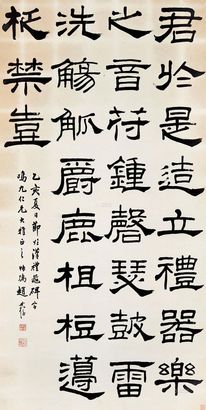 君於是造立禮器樂
之音苻鍾磬瑟鼓雷
洗觴觚爵鹿柤梪籩
柉禁壺
乙亥夏日節臨漢禮器碑字
鴻九仁兄大雅正之 趙